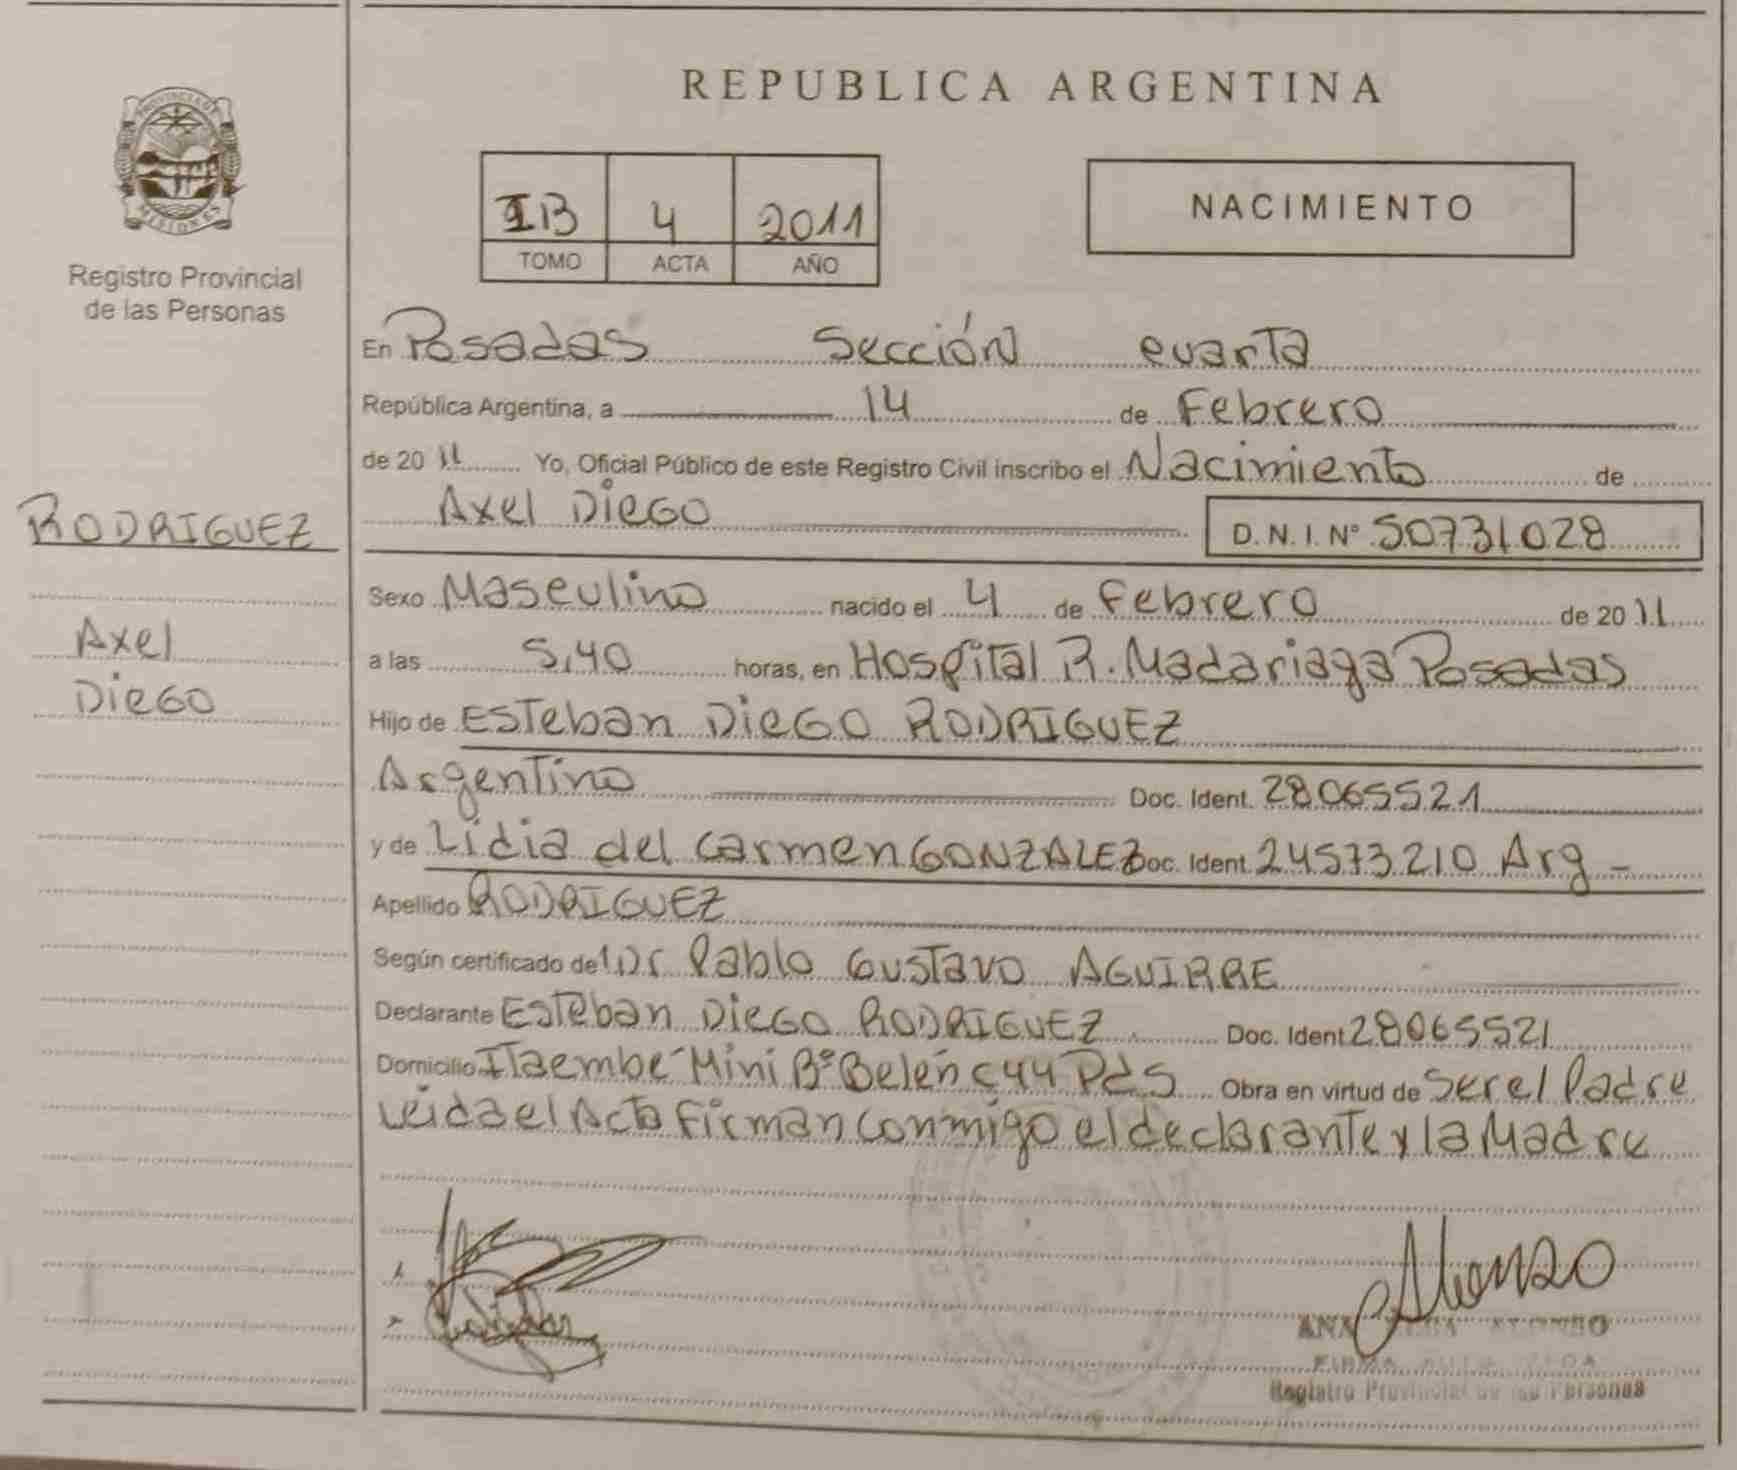 REPUBLICA ARGENTINA
PROVINCIA DE
MISIONES
Registro Provincial
de las Personas
IB 4 2011
TOMO ACTA AÑO
NACIMIENTO
En Posadas Sección cuarta
República Argentina, a 14 de Febrero
de 20 11 Yo, Oficial Público de este Registro Civil inscribo el Nacimiento de
RODRIGUEZ
Axel Diego D.N.I. Nº 50731028
Sexo Masculino nacido el 4 de Febrero de 20 11
Axel
a las 5,40 horas, en Hospital R. Madariaga Posadas
Diego
Hijo de Esteban Diego RODRIGUEZ
Argentino Doc. Ident. 28065521
y de Lidia del Carmen GONZALEZ Doc. Ident. 24573210 Arg -
Apellido RODRIGUEZ
Según certificado de l Dr Pablo Gustavo AGUIRRE
Declarante Esteban Diego RODRIGUEZ Doc. Ident 28065521
Domicilio Itaembe Mini Bº Belén c 44 Pdas Obra en virtud de Ser el Padre
Leida el Acta Firman conmigo el declarante y la Madre
Alonzo
ANA ALONSO
FIRMA
Registro Provincial de las Personas